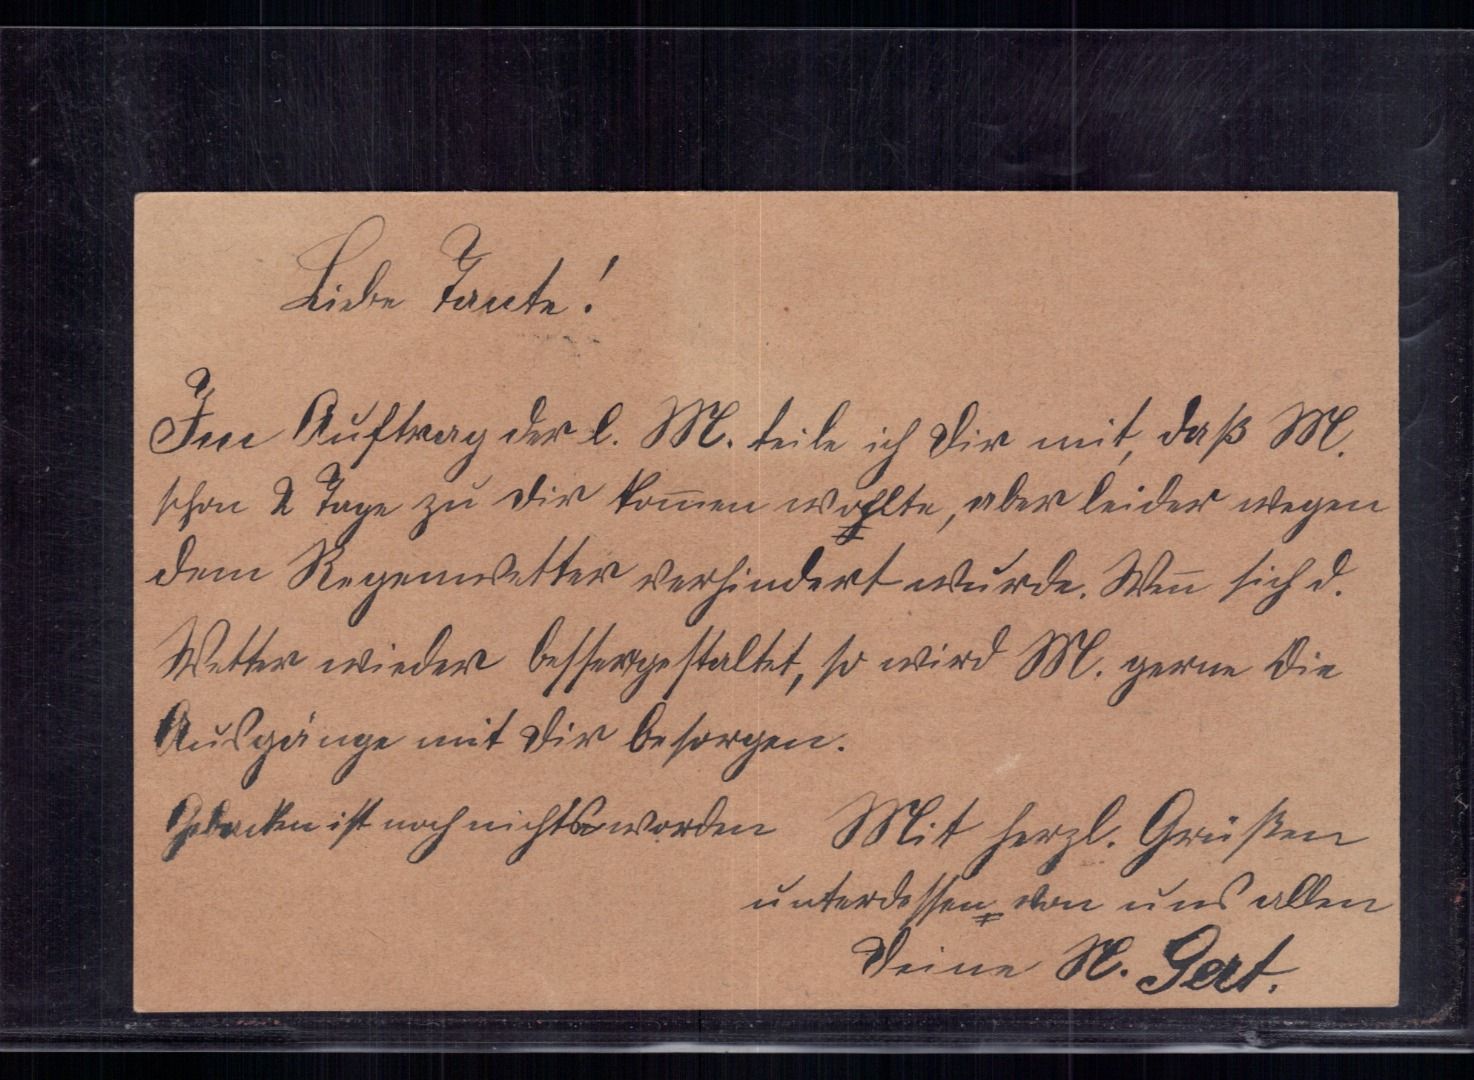 Liebe Tante!
Im Auftrag der l. M. teile ich Dir mit, daß M.
schon 2 Tage zu Dir kom̅en wollte, aber leider wegen
dem Regenwetter verhindert wurde. Wen̅ sich d.
Wetter wieder bessergestaltet, so wird M. gerne die
Ausgänge mit Dir besorgen.
Gebacken ist noch nichts worden
Mit herzl. Grüßen
unterdessen von uns allen
Deine N. Gert.